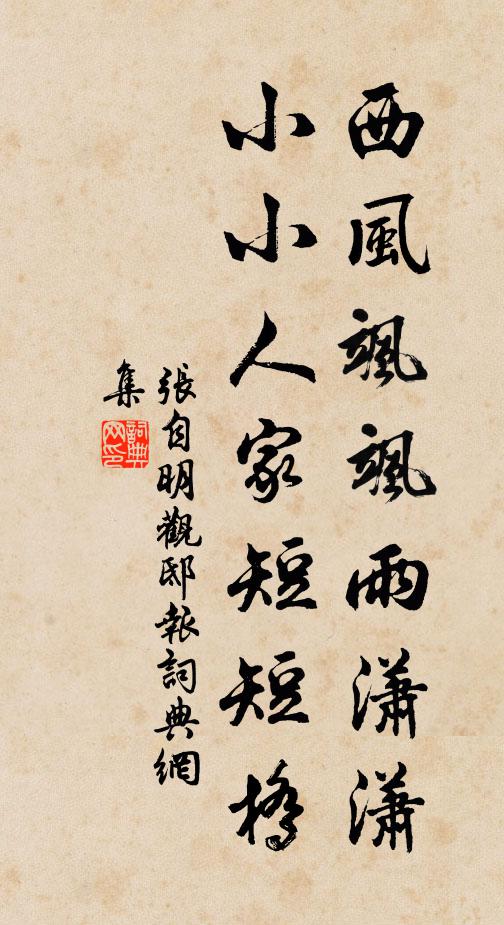 西風颯颯雨瀟瀟
小小人家短短橋
張自明觀邸報詞典網
集
詞典
网印